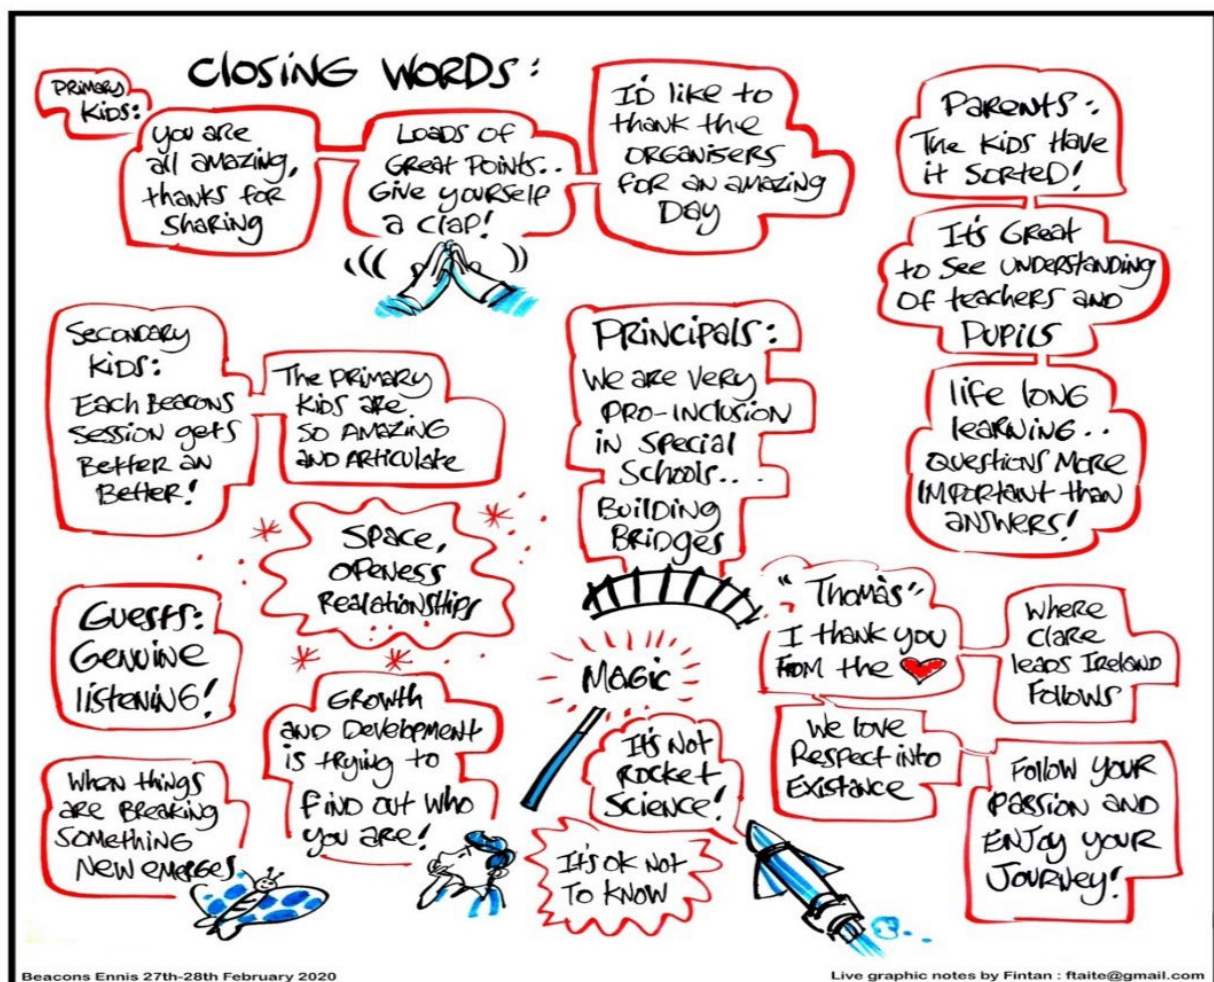 CLOSING WORDS:
PRIMARY
KIDS:
you are
all amazing,
thanks for
sharing
LOADS OF
GREAT POINTS..
GIVE YOURSELF
a clap!
I'D like to
thank the
ORGANISERS
FOR an amazing
DAY
PARENTS:
The KIDS HAVE
it SORTED!
It's GREAT
to See UNDERSTANDING
OF teachers AND
PUPILS
life long
learning..
QUESTIONS MORE
IMPORTANT than
answers!
SECONDARY
KIDS:
EACH BEACONS
SESSION gets
BETTER an
BETTER!
The PRIMARY
KIDS ARE
SO AMAZING
AND ARTICULATE
PRINCIPALS:
We are very
PRO-INCLUSION
in SPECIAL
Schools....
Building
BRIDGES
SPACE,
OPENESS
REALATIONSHIPS
GUESTS:
GENUINE
listening!
When things
are BREAKING
SOMETHING
NEW emerges
GROWTH
AND Development
is trying to
FIND OUT WHO
you are!
MAGIC
It's Not
ROCKET
SCIENCE!
It's ok Not
TO KNOW
"Thomàs"
I thank you
FROM the
where
CLARE
leads IRELAND
FOLLOWS
We love
Respect into
Existance
FOLLOW YOUR
PASSION AND
ENJOY YOUR
JOURNEY!
Beacons Ennis 27th-28th February 2020
Live graphic notes by Fintan : ftaite@gmail.com